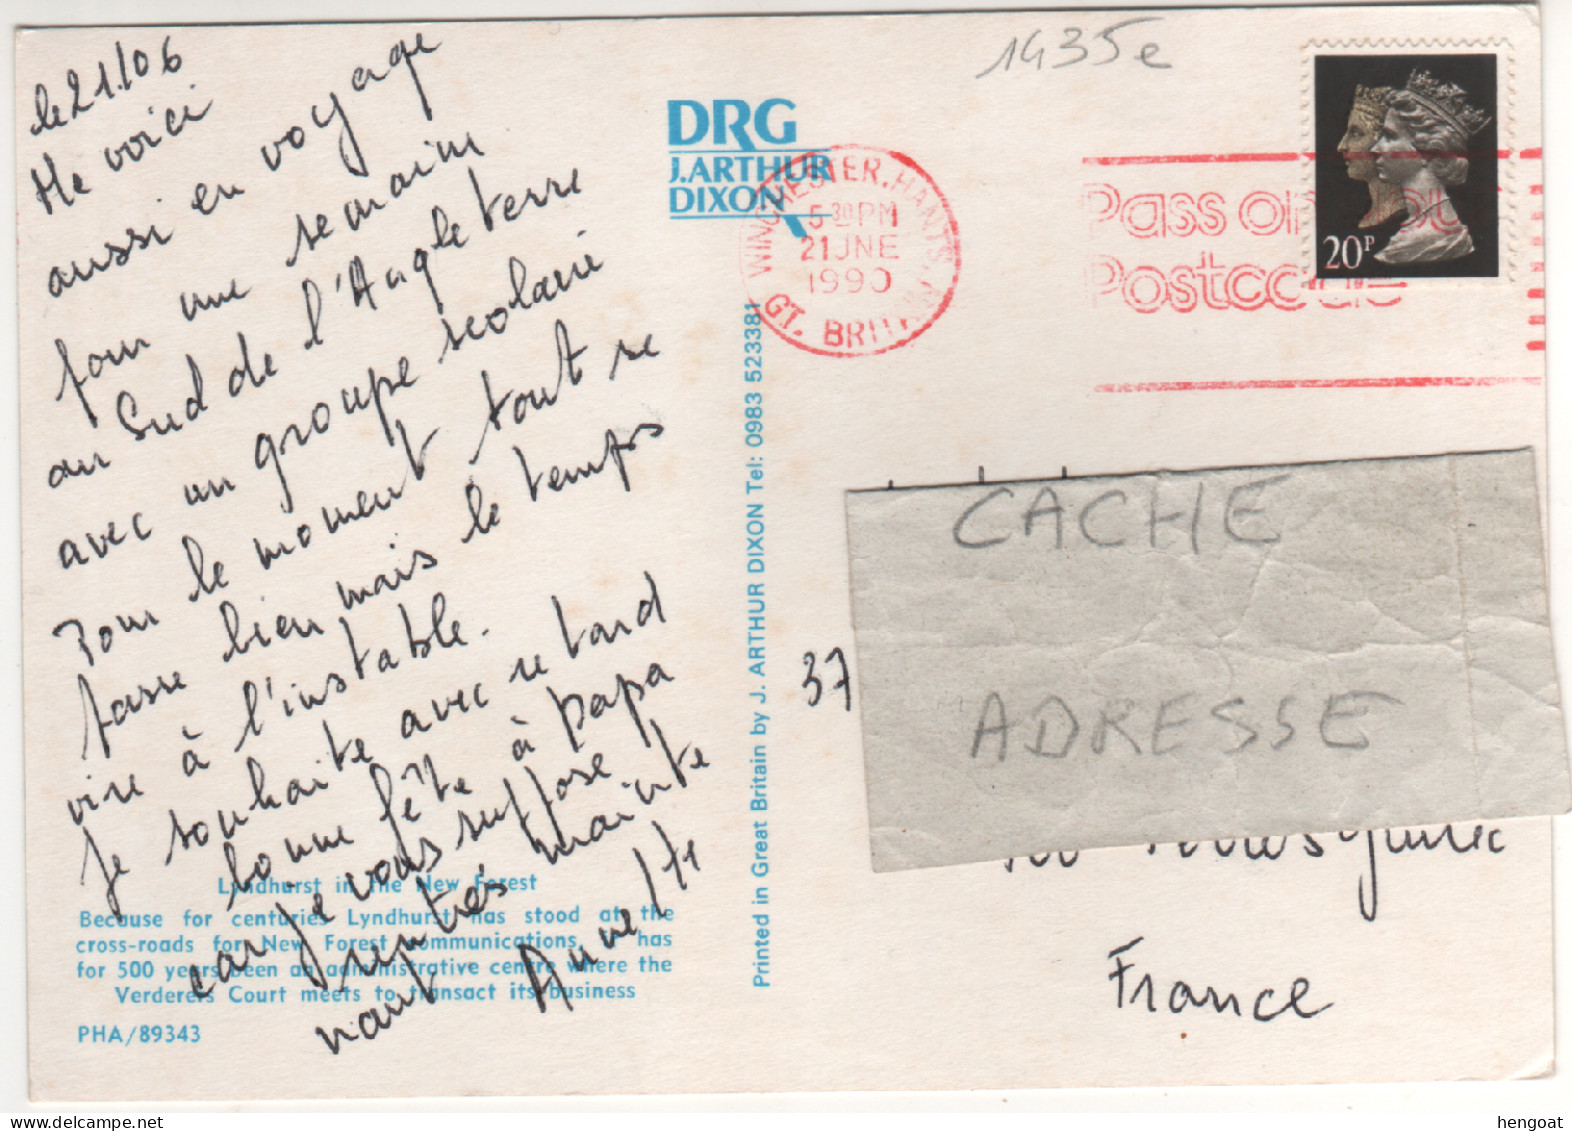 le 21/06
Me voici
aussi en voyage
pour une semaine
au Sud de l'Angleterre
avec un groupe scolaire
Pour le moment tout se
passe bien mais le temps
vire à l'instable.
Je souhaite avec retard
bonne fête à papa
car je vous suppose
rentrés mainte
nant Annette
Lyndhurst in the New Forest
Because for centuries Lyndhurst has stood at the
cross-roads for New Forest communications, it has
for 500 years been an administrative centre where the
Verderers Court meets to transact its business
PHA/89343
DRG
J.ARTHUR
DIXON
Printed in Great Britain by J. ARTHUR DIXON Tel: 0983 523381
1435e
WINCHESTER, HANTS.
5 30 PM
21 JNE
1990
GT. BRITAIN
Pass on your
Postcode
20P
CACHE
ADRESSE
37
France
hengoat